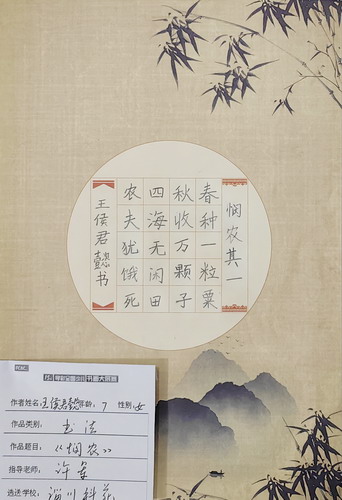 悯农其一
春种一粒粟
秋收万颗子
四海无闲田
农夫犹饿死
王俟君懿书
作者姓名:王俟君懿 年龄:7 性别:女
作品类别:书法
作品题目:《悯农》
指导老师:许
选送学校:淄川